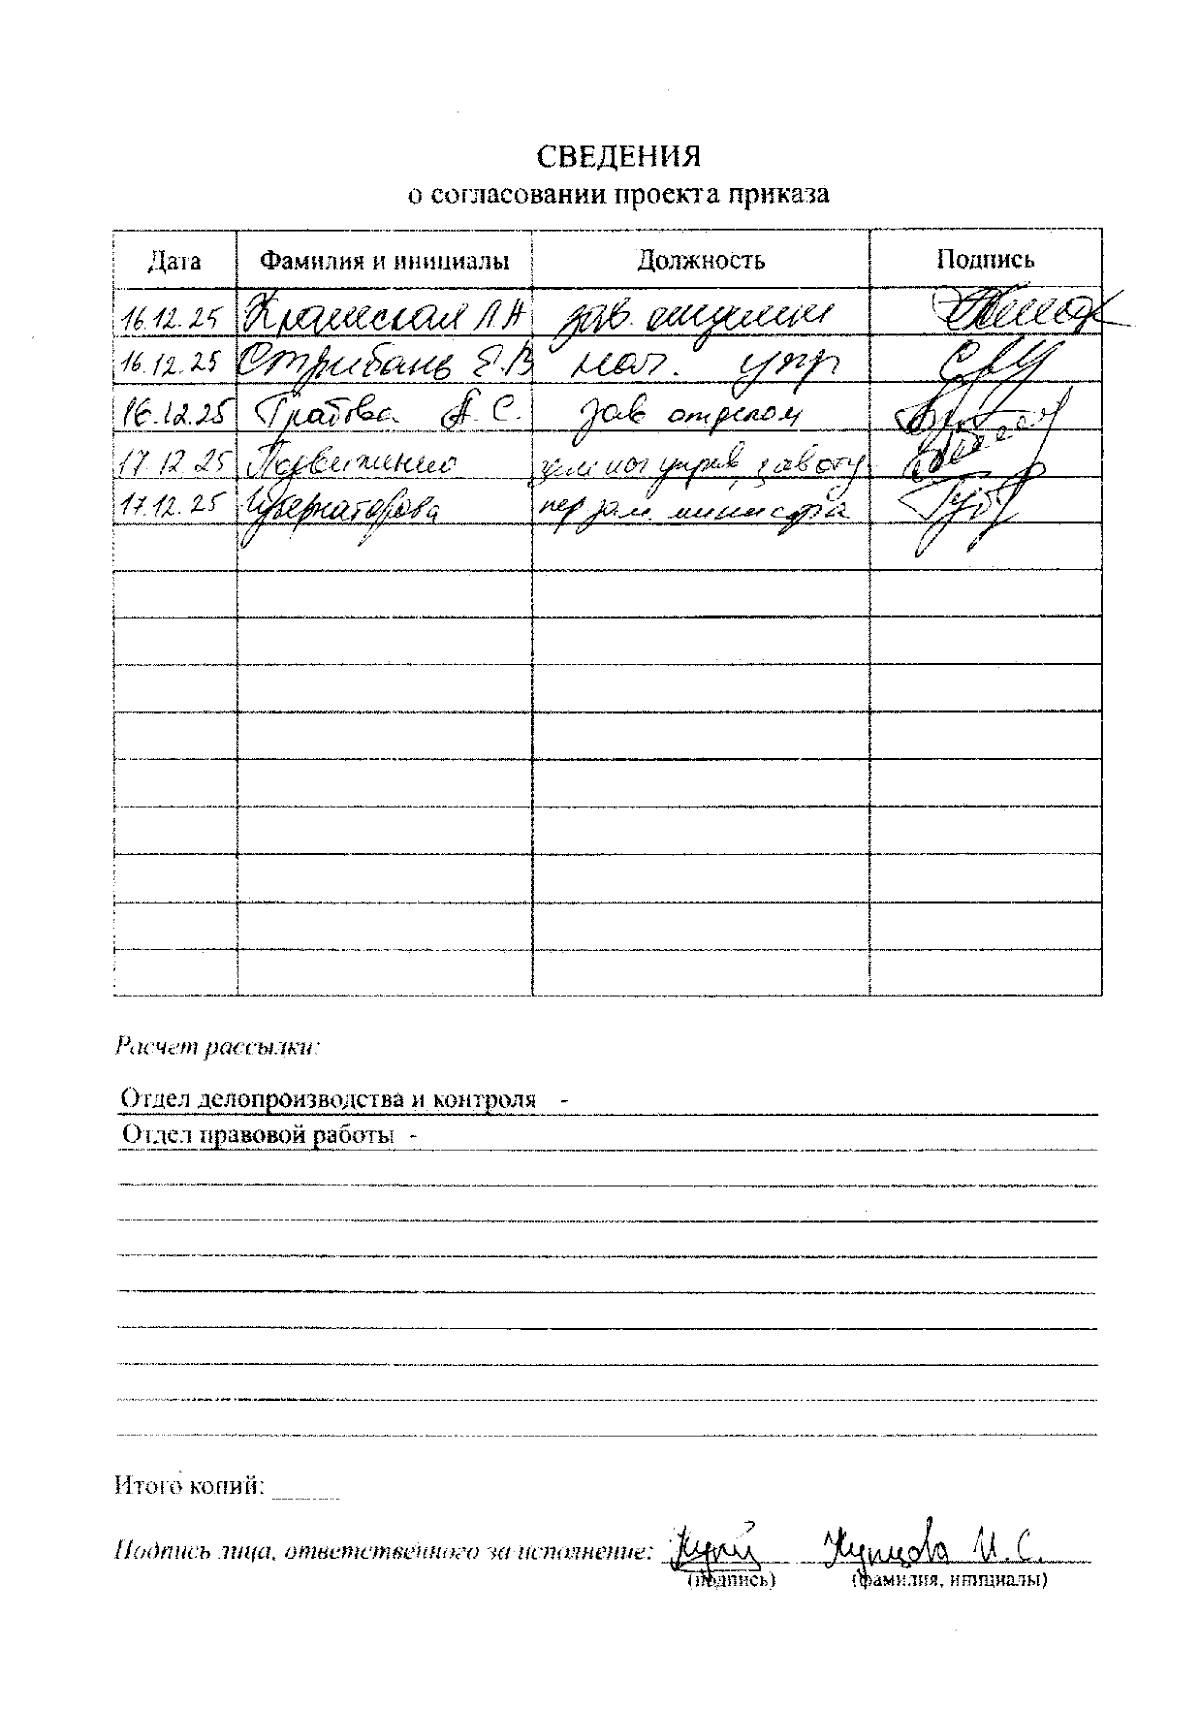 СВЕДЕНИЯ
о согласовании проекта приказа
Дата Фамилия и инициалы Должность Подпись
16.12.25 Л А зав.
16.12.25 Стрибань Е.В нач. упр
16.12.25 А. С. зав отделом
17.12.25
17.12.25 Губернаторова пер зам. министра
Расчет рассылки:
Отдел делопроизводства и контроля -
Отдел правовой работы -
Итого копий:
Подпись лица, ответственного за исполнение: Купцова И. С.
(подпись) (фамилия, инициалы)